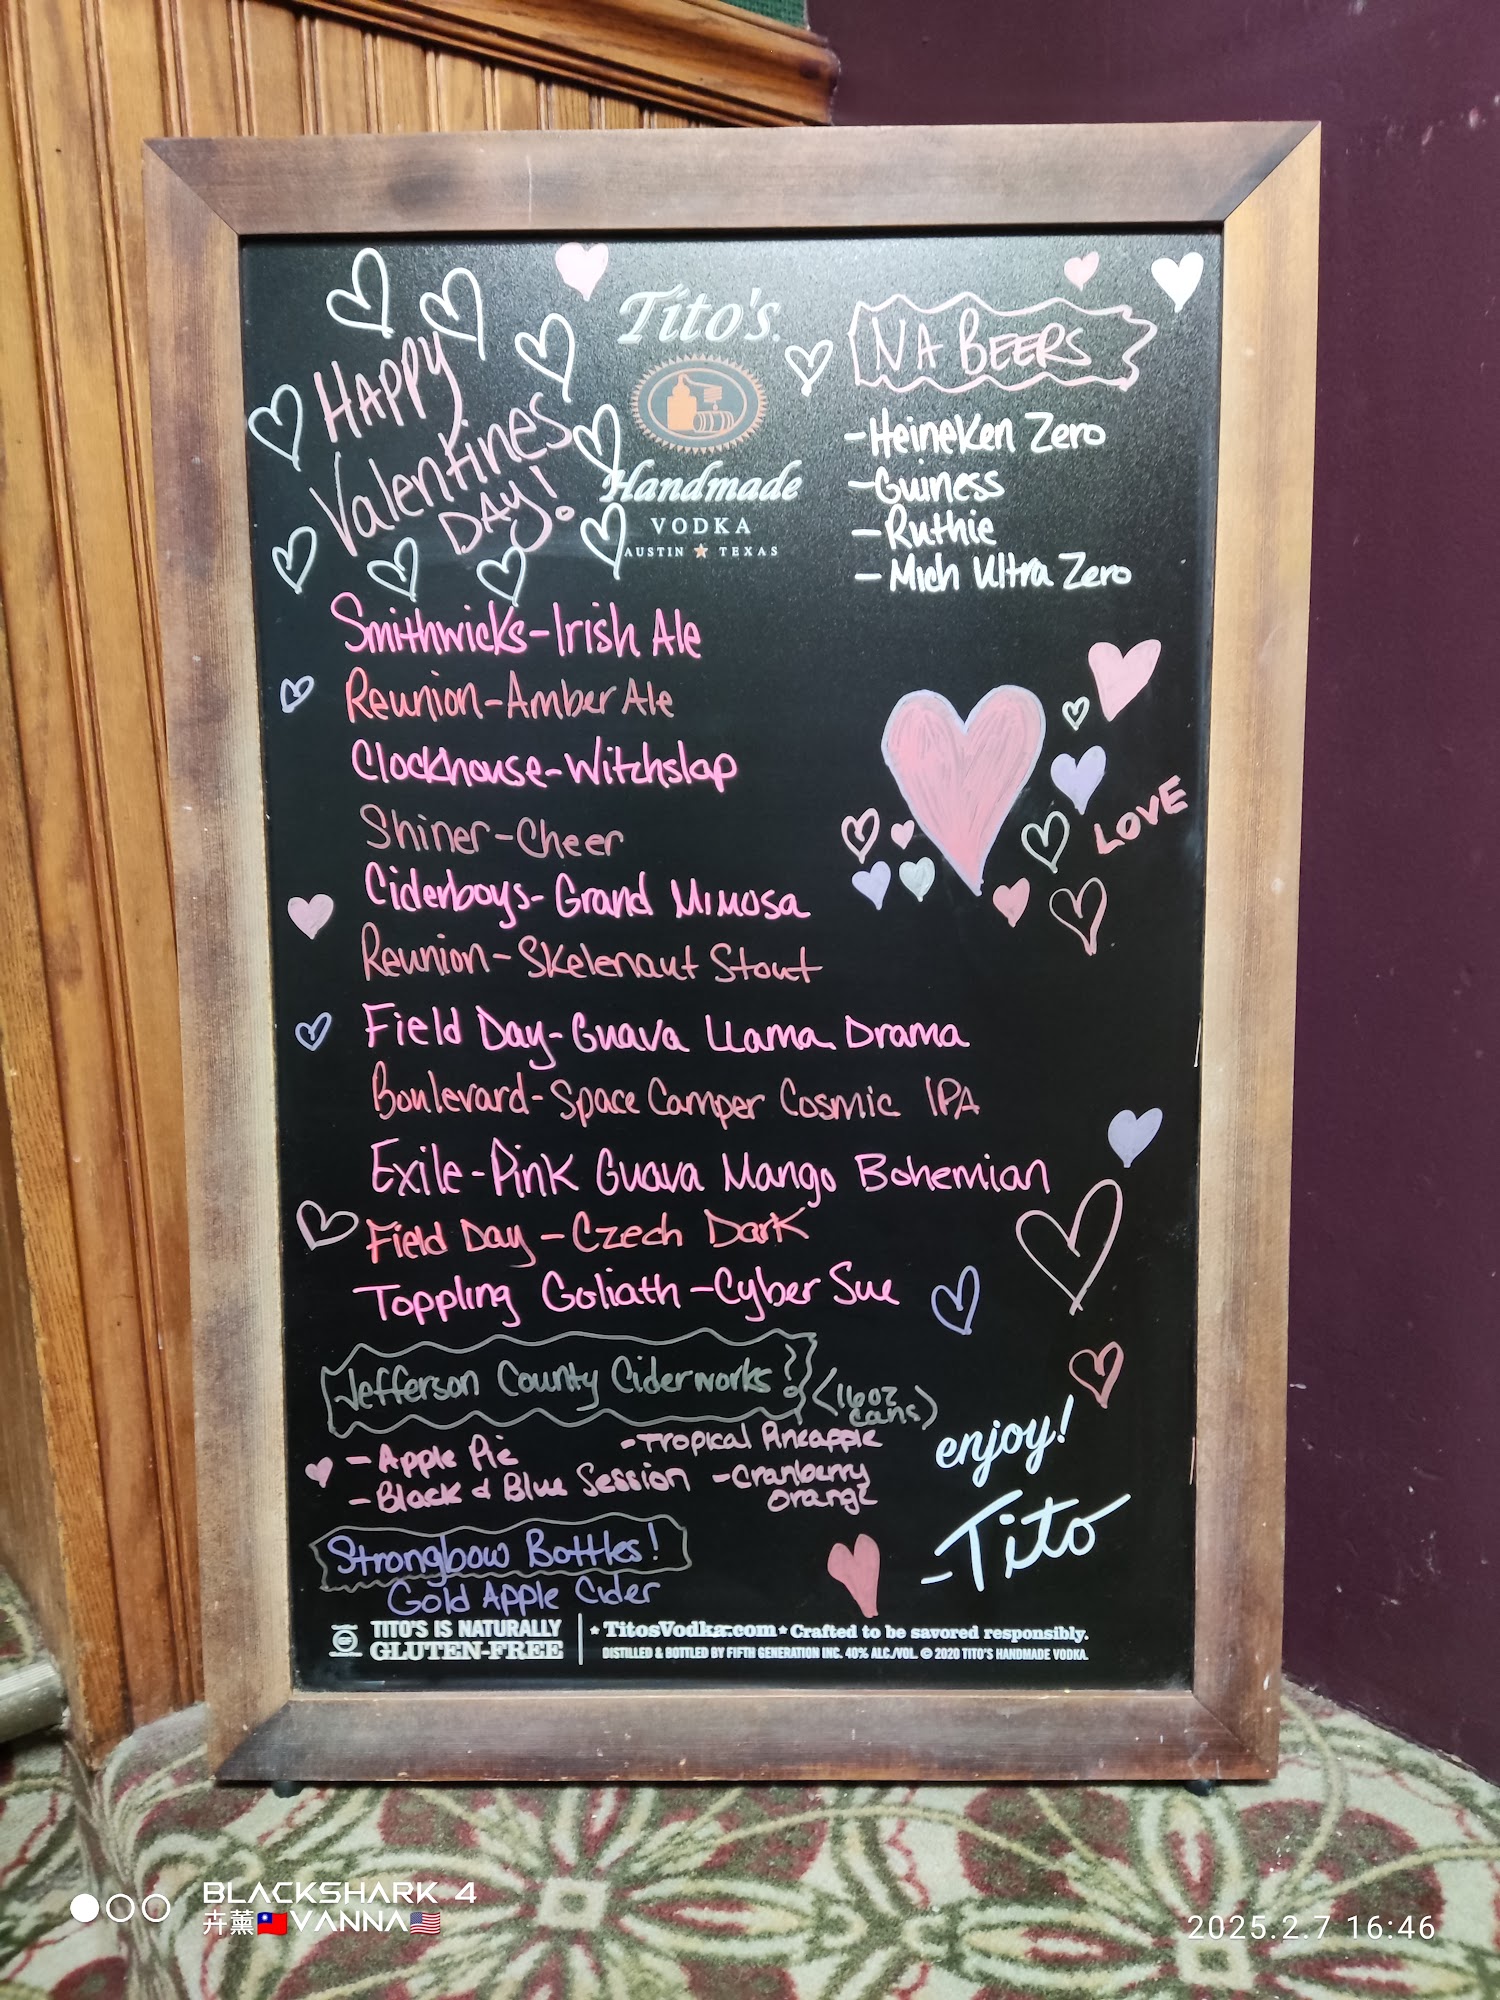 HAPPY
Valentines
DAY!
Tito's
Handmade
VODKA
AUSTIN ★ TEXAS
NA BEERS
-Heineken Zero
-Guiness
-Ruthie
-Mich Ultra Zero
Smithwicks-Irish Ale
Reunion-Amber Ale
Clockhouse-Witchslap
Shiner-Cheer
Ciderboys-Grand Mimosa
Reunion-Skelenaut Stout
Field Day-Guava Llama Drama
Boulevard-Space Camper Cosmic IPA
Exile-Pink Guava Mango Bohemian
Field Day-Czech Dark
Toppling Goliath-Cyber Sue
LOVE
Jefferson County Ciderworks! (16oz
cans)
-Apple Pie
-Black & Blue Session
-Tropical Pineapple
-Cranberry
Orange
Strongbow Bottles!
Gold Apple Cider
enjoy!
-Tito
TITO'S IS NATURALLY
GLUTEN-FREE
★ TitosVodka.com ★ Crafted to be savored responsibly.
DISTILLED & BOTTLED BY FIFTH GENERATION INC. 40% ALC./VOL. © 2020 TITO'S HANDMADE VODKA.
BLACKSHARK 4
卉薰🇹🇼VANNA🇺🇸
2025.2.7 16:46